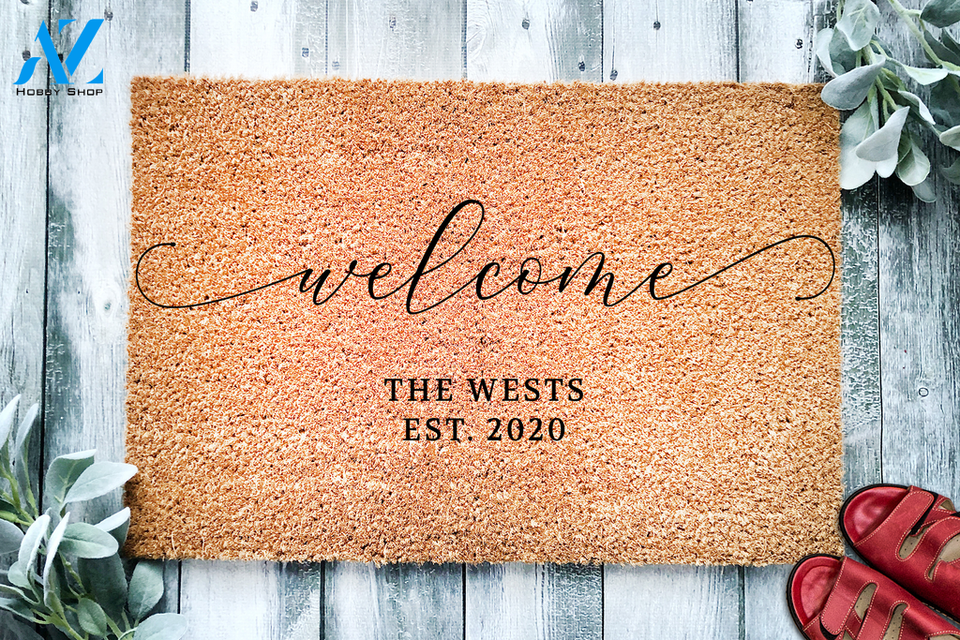 AZ
HOBBY SHOP
welcome
THE WESTS
EST. 2020